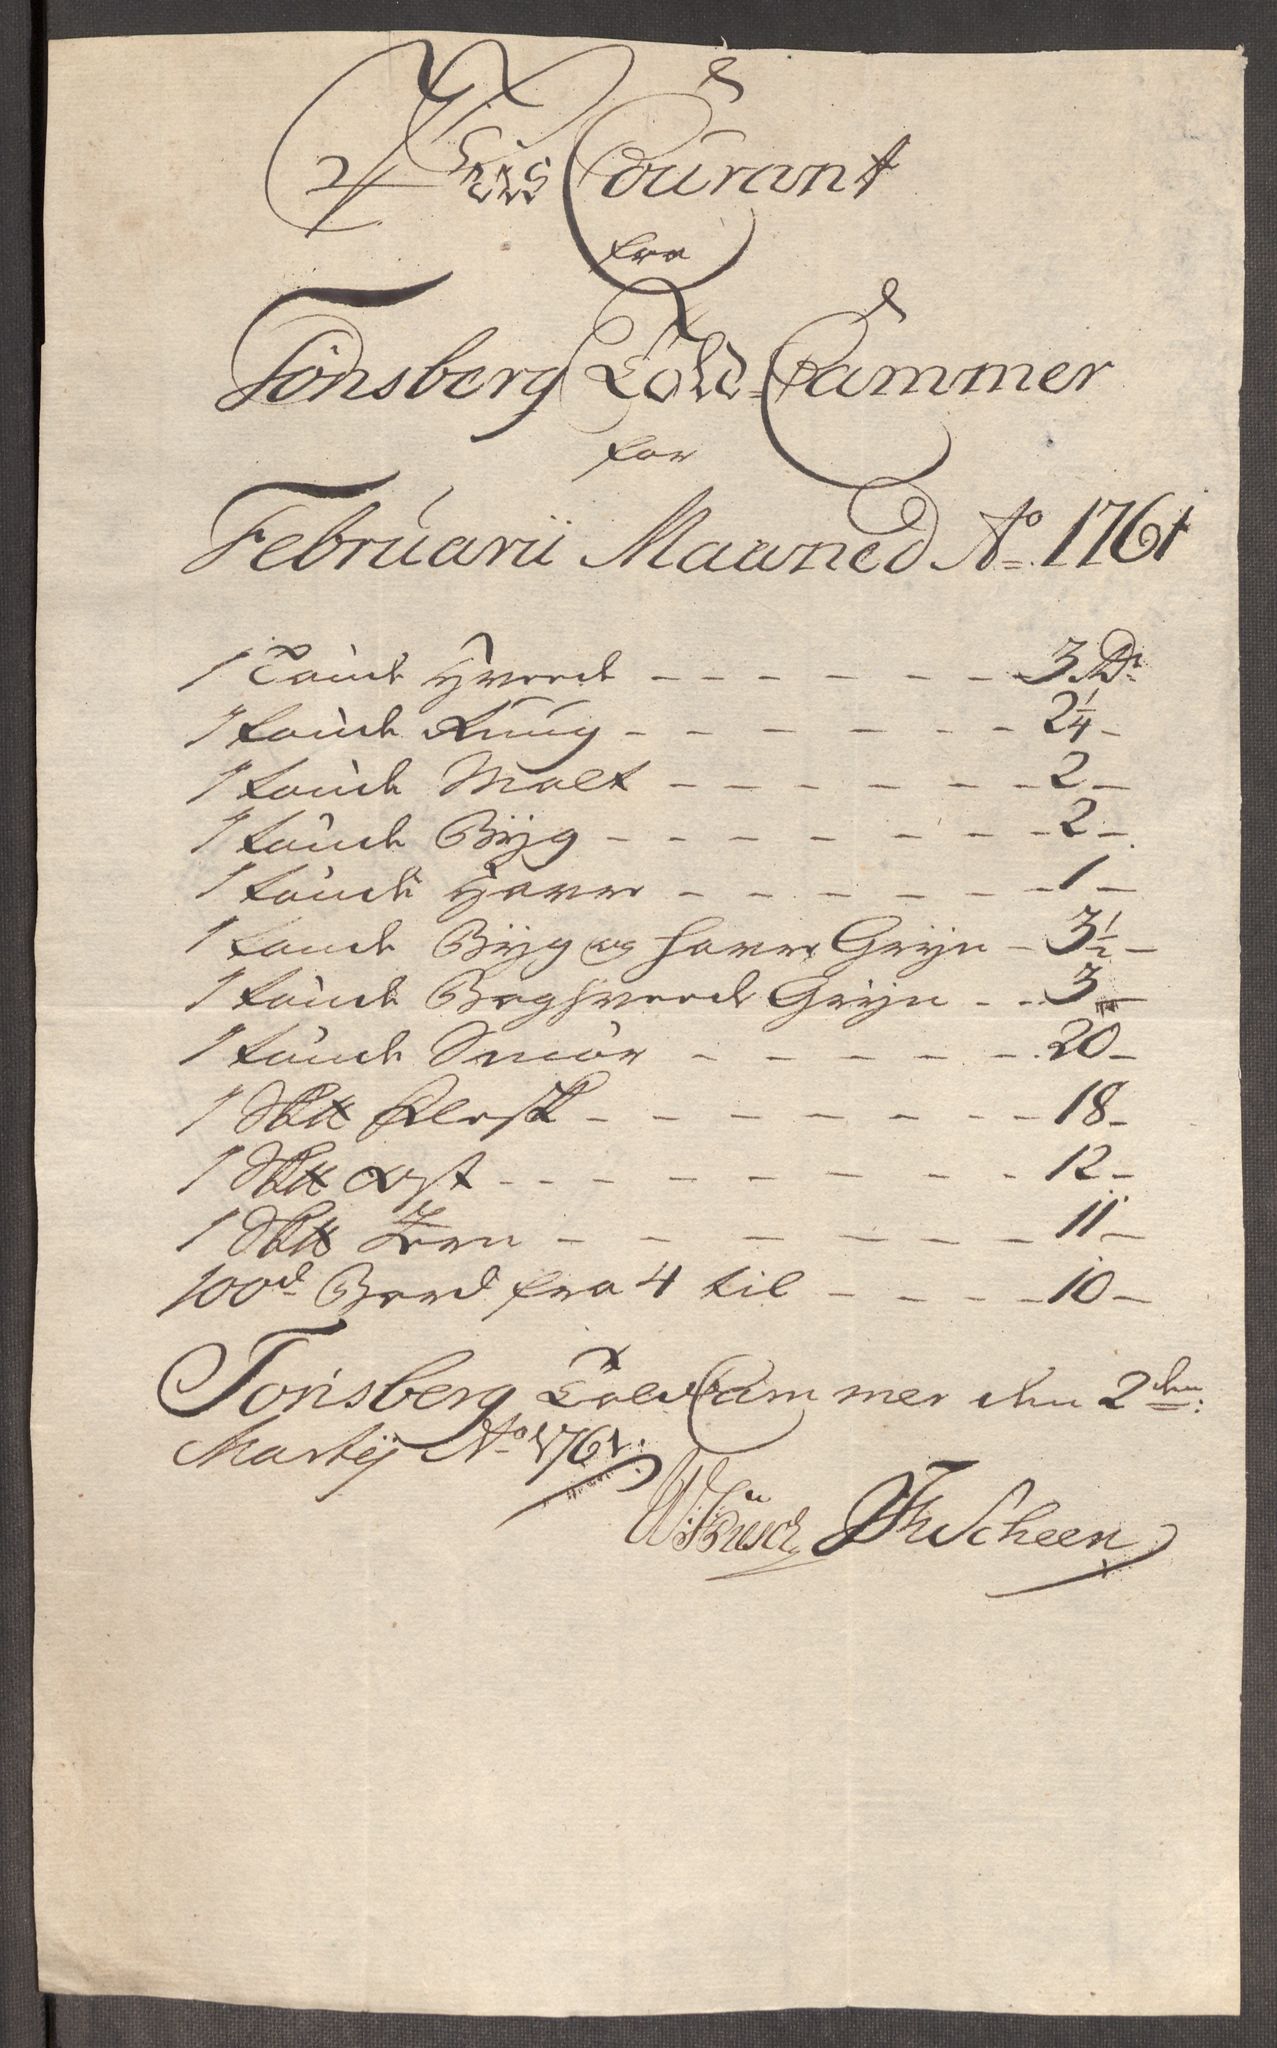 Priis Courant
fra
Tönsberg Told-Cammer
for
Februarii Maaned Ao 1761
1 Tönde Hveede - - - - - - - 3 Rdr
1 tönde Ruug - - - - - - - 2 1/4 -
1 tönde Malt - - - - - - - 2 -
1 tönde Byg - - - - - - - 2 -
1 tönde Havre - - - - - - - 1 -
1 tönde Byg og havre Gryn - 3 1/2 -
1 tönde Boghveede Gryn - - 3 -
1 tönde Smör - - - - - - 20 -
1 Sk℔ Flesk - - - - - - - - 18 -
1 Sk℔ Ost - - - - - - - - 12 -
1 Sk℔ Jern - - - - - - - - 11 -
100d Bord fra 4 til - - - - 10 -
Tönsberg Told Cammer den 2den
Martij Ao 1761.
Scheen